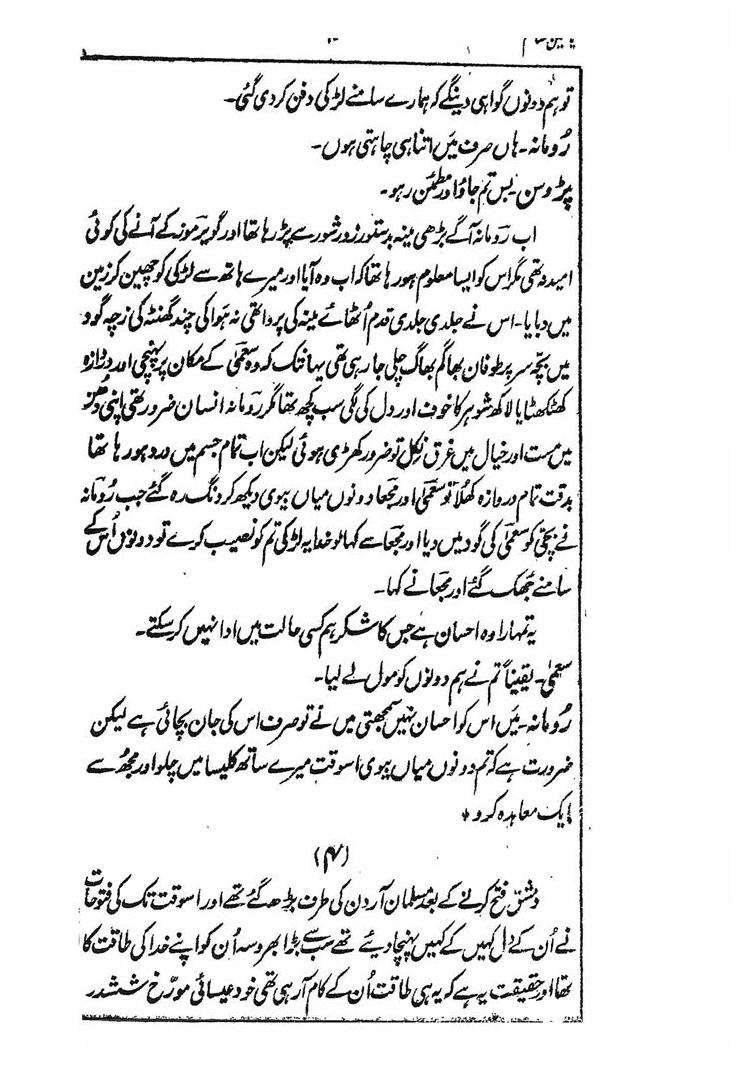 تو ہم دونوں گواہی دینگے کہ ہمارے سامنے لڑکی دفن کر دی گئی۔
رُومانہ۔ ہاں صرف میَں اتنا ہی چاہتی ہوں۔
پڑوسن۔ بس تم جاؤ اور مطمئن رہو۔
اب رَومانہ آگے بڑھی مینہ بدستور زور شور سے پڑ رہا تھا اور گو پرموز کے آنے کی کوئی
امید نہ تھی مگر اس کو ایسا معلوم ہو رہا تھا کہ اب وہ آیا اور میرے ہاتھ سے لڑکی کو چھین کر زمین
میں دبایا۔ اس نے جلدی جلدی قدم اُٹھائے مینہ کی پروا تھی نہ ہَوا کی چند گھنٹہ کی زچہ گود
میں بچّہ سر پر طوفان بھاگم بھاگ چلی جا رہی تھی یہانتک کہ وہ سعمیٰ کے مکان پر پہنچی اور دروازہ
کھٹکھٹایا لاکھ شوہر کا خوف اور دل کی لگی سب کچھ تھا مگر رَومانہ انسان ضرور تھی اپنی دُھن
میں مست اور خیال میں غرق نِکل تو ضرور کھڑی ہوئی لیکن اب تمام جسم میں درد ہو رہا تھا
بدقت تمام دروازہ کھلا تو سعمیٰ اور مجعا دونوں میاں بیوی دیکھ کر دنگ رہ گئے جب رُومانہ
نے بچّی کو سعمیٰ کی گود میں دیا اور مجعا سے کہا لو خدا یہ لڑکی تم کو نصیب کرے تو دونوں اُس کے
سامنے جُھک گئے اور مجعا نے کہا۔
یہ تمہارا وہ احسان ہے جس کا شکر ہم کسی حالت میں ادا نہیں کر سکتے۔
سعمیٰ۔ یقیناً تم نے ہم دونوں کو مول لے لیا۔
رُومانہ۔ میَں اس کو احسان نہیں سمجھتی میں نے تو صرف اس کی جان بچائی ہے لیکن
ضرورت ہے کہ تم دونوں میاں بیوی اسوقت میرے ساتھ کلیسا میں چلو اور مجھ سے
ایک معاہدہ کرو ٭
(۴)
دمشق فتح کرنے کے بعد مسلمان آردن کی طرف بڑھ گئے تھے اور اسوقت تک کی فتوحات
نے اُن کے دل کہیں کے کہیں پہنچا دیئے تھے سب سے بڑا بھروسہ اُن کو اپنے خدا کی طاقت کا
تھا اور حقیقت یہ ہے کہ یہ ہی طاقت اُن کے کام آ رہی تھی خود عیسائی مورّخ ششدر